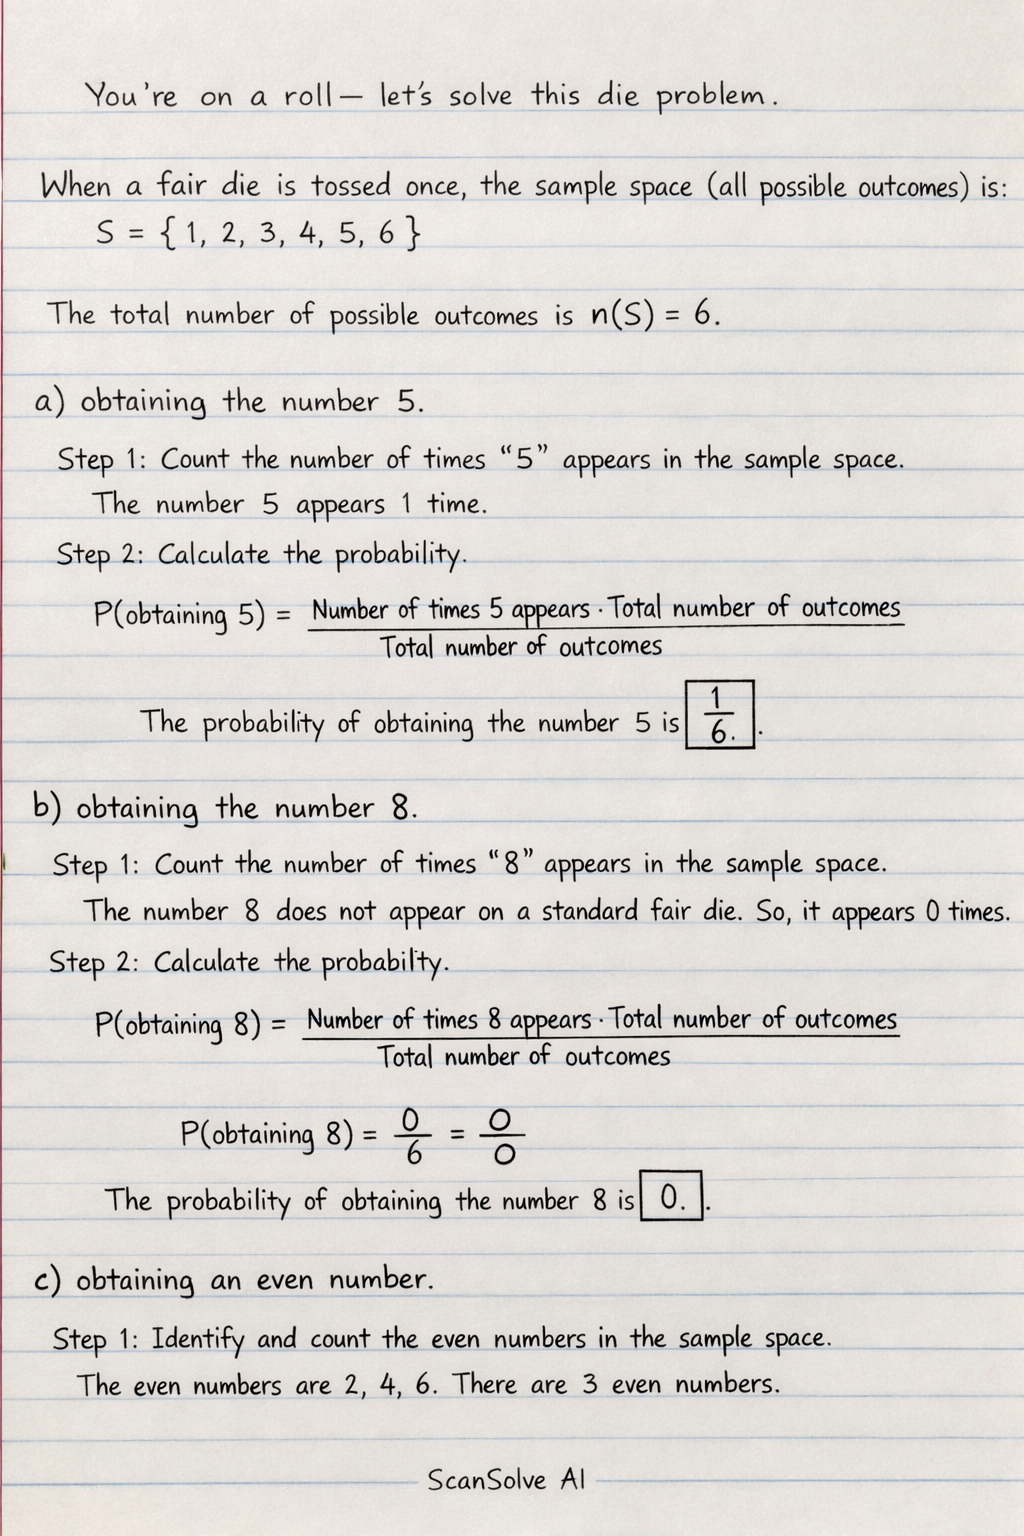 You're on a roll — let's solve this die problem.
When a fair die is tossed once, the sample space (all possible outcomes) is:
S = { 1, 2, 3, 4, 5, 6 }
The total number of possible outcomes is n(S) = 6.
a) obtaining the number 5.
Step 1: Count the number of times “5” appears in the sample space.
The number 5 appears 1 time.
Step 2: Calculate the probability.
P(obtaining 5) = Number of times 5 appears · Total number of outcomes
Total number of outcomes
The probability of obtaining the number 5 is 1/6. .
b) obtaining the number 8.
Step 1: Count the number of times “8” appears in the sample space.
The number 8 does not appear on a standard fair die. So, it appears 0 times.
Step 2: Calculate the probability.
P(obtaining 8) = Number of times 8 appears · Total number of outcomes
Total number of outcomes
P(obtaining 8) = 0/6 = 0/0
The probability of obtaining the number 8 is 0. .
c) obtaining an even number.
Step 1: Identify and count the even numbers in the sample space.
The even numbers are 2, 4, 6. There are 3 even numbers.
ScanSolve AI